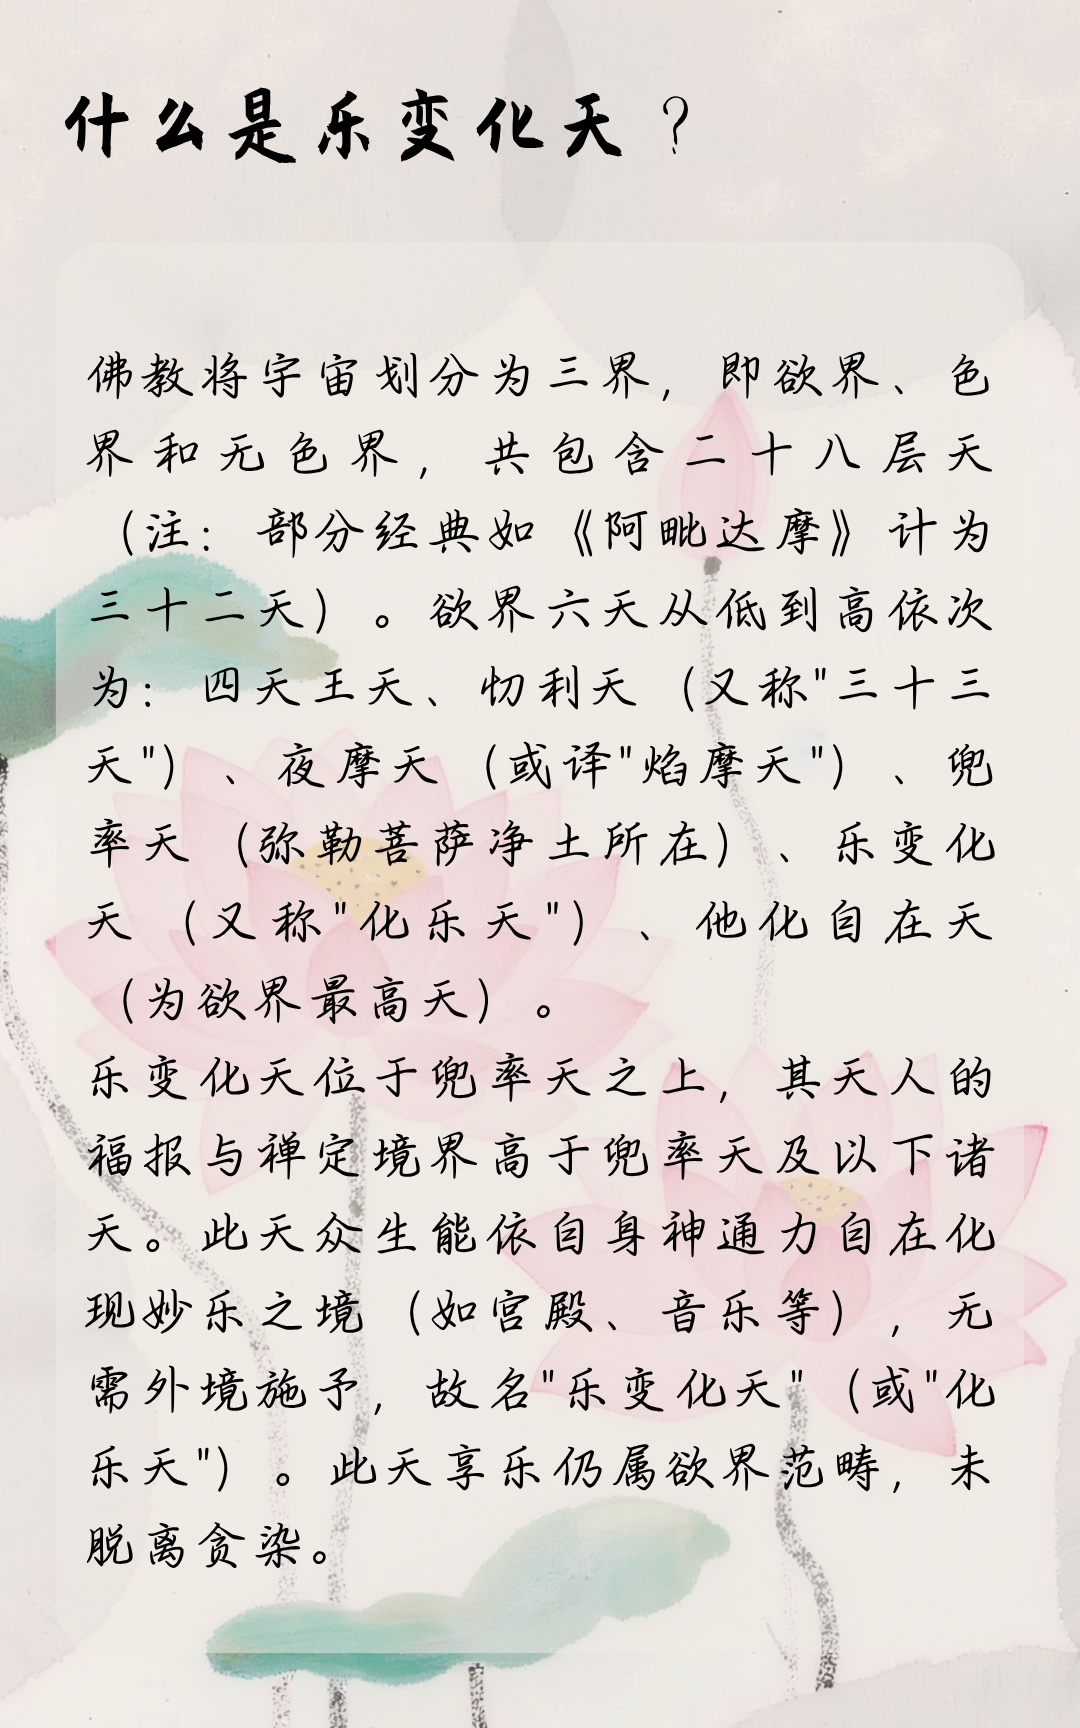 什么是乐变化天？
佛教将宇宙划分为三界，即欲界、色
界和无色界，共包含二十八层天
（注：部分经典如《阿毗达摩》计为
三十二天）。欲界六天从低到高依次
为：四天王天、忉利天（又称"三十三
天"）、夜摩天（或译"焰摩天"）、兜
率天（弥勒菩萨净土所在）、乐变化
天（又称"化乐天"）、他化自在天
（为欲界最高天）。
乐变化天位于兜率天之上，其天人的
福报与禅定境界高于兜率天及以下诸
天。此天众生能依自身神通力自在化
现妙乐之境（如宫殿、音乐等），无
需外境施予，故名"乐变化天"（或"化
乐天"）。此天享乐仍属欲界范畴，未
脱离贪染。